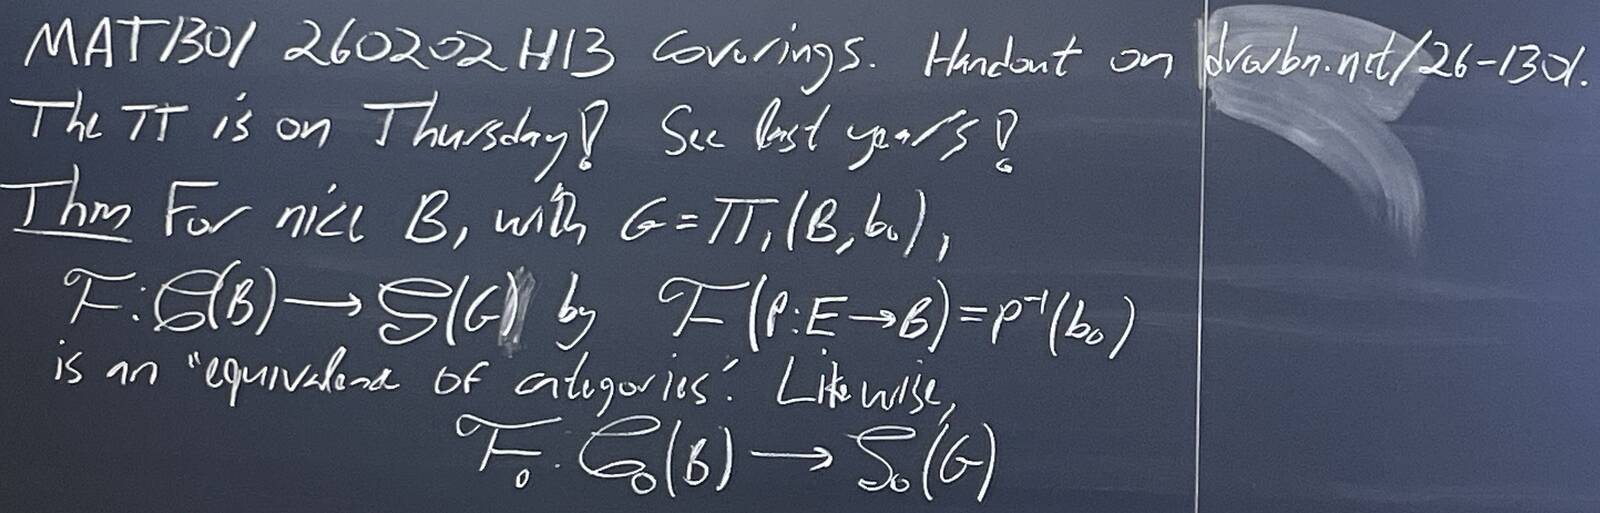 MAT1301 260202 H13 Coverings. Handout on drorbn.net/26-1301.
The TT is on Thursday! See last year's!
Thm For nice B, with G=π₁(B,b₀),
ℱ:𝒞(B)→𝒮(G) by ℱ(p:E→B)=p⁻¹(b₀)
is an "equivalence of categories". Likewise,
ℱ₀:𝒞₀(B)→𝒮₀(G)